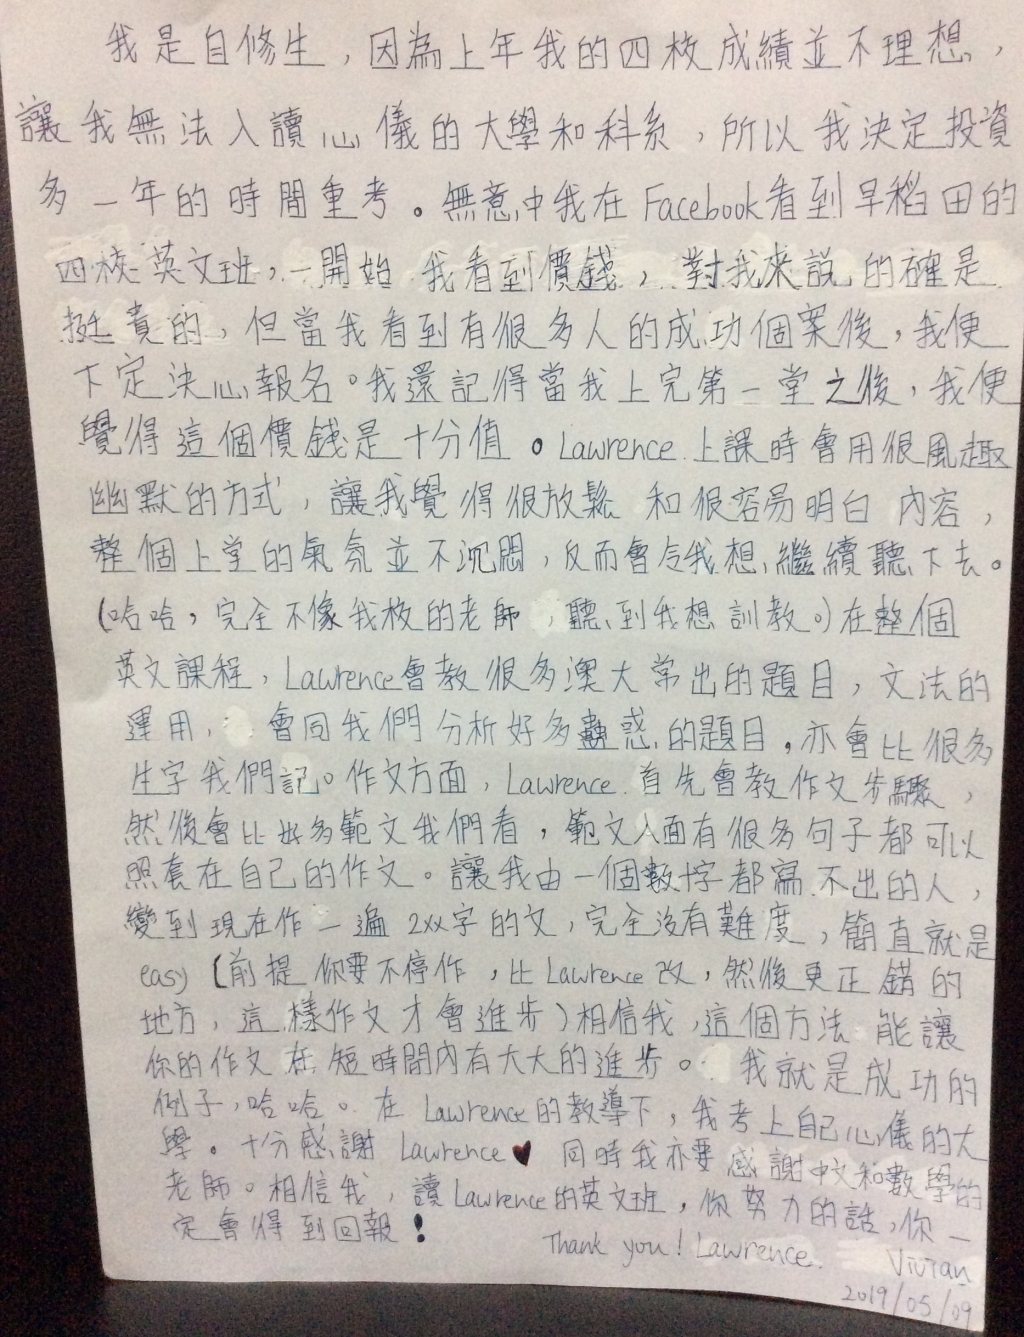 我是自修生，因為上年我的四校成績並不理想，
讓我無法入讀心儀的大學和科系，所以我決定投資
多一年的時間重考。無意中我在Facebook看到早稻田的
四校英文班，一開始我看到價錢，對我來說的確是
挺貴的，但當我看到有很多人的成功個案後，我便
下定決心報名。我還記得當我上完第一堂之後，我便
覺得這個價錢是十分值。Lawrence上課時會用很風趣
幽默的方式，讓我覺得很放鬆和很容易明白內容，
整個上堂的氣氛並不沉悶，反而會令我想繼續聽下去。
(哈哈，完全不像我校的老師，聽到我想訓教。)在整個
英文課程，Lawrence會教很多澳大常出的題目，文法的
運用，會同我們分析好多蠱惑的題目，亦會比很多
生字我們記。作文方面，Lawrence首先會教作文步驟，
然後會比好多範文我們看，範文入面有很多句子都可以
照套在自己的作文。讓我由一個數十字都寫不出的人，
變到現在作一遍2xx字的文，完全沒有難度，簡直就是
easy(前提你要不停作，比Lawrence改，然後更正錯的
地方，這樣作文才會進步)相信我，這個方法能讓
你的作文在短時間內有大大的進步。我就是成功的
例子，哈哈。在Lawrence的教導下，我考上自己心儀的大
學。十分感謝Lawrence♥ 同時我亦要感謝中文和數學的
老師。相信我，讀Lawrence的英文班，你努力的話，你一
定會得到回報！
Thank you! Lawrence.
Vivian
2019/05/09